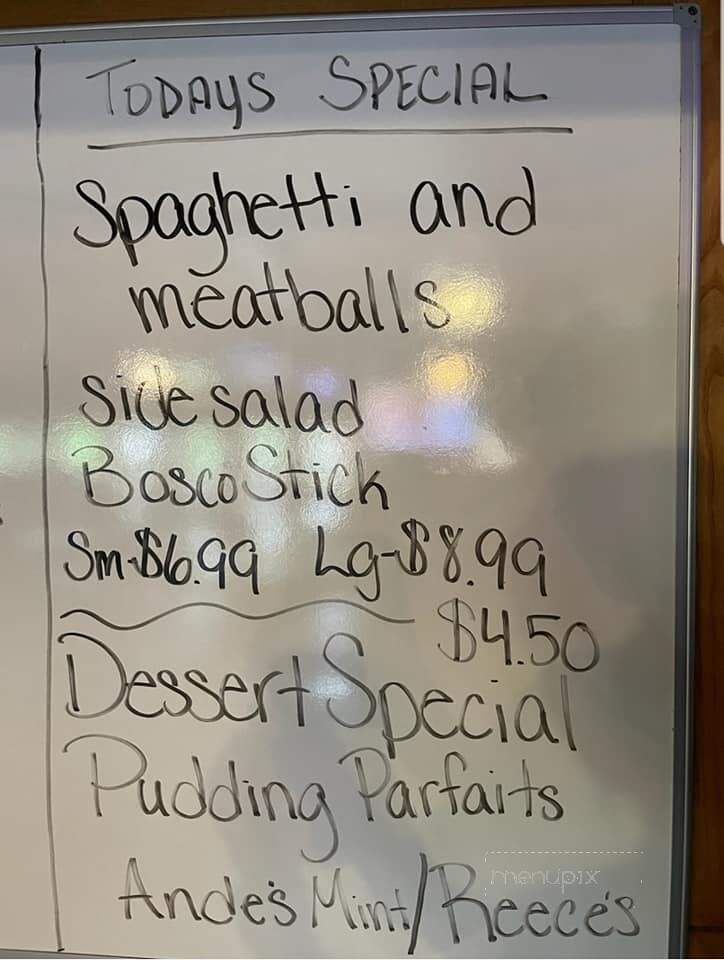 TODAYS SPECIAL
Spaghetti and
meatballs
Side salad
Bosco Stick
Sm-$6.99 Lg-$8.99
$4.50
Dessert Special
Pudding Parfaits
Ande's Mint/Reece's
menupix